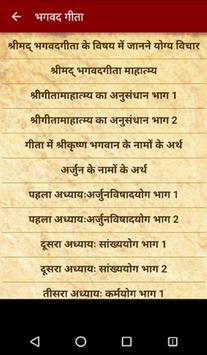 भगवद गीता
श्रीमद् भगवदगीता के विषय में जानने योग्य विचार
श्रीमद् भगवदगीता माहात्म्य
श्रीगीतामाहात्म्य का अनुसंधान भाग 1
श्रीगीतामाहात्म्य का अनुसंधान भाग 2
गीता में श्रीकृष्ण भगवान के नामों के अर्थ
अर्जुन के नामों के अर्थ
पहला अध्यायःअर्जुनविषादयोग भाग 1
पहला अध्यायःअर्जुनविषादयोग भाग 2
दूसरा अध्यायः सांख्ययोग भाग 1
दूसरा अध्यायः सांख्ययोग भाग 2
तीसरा अध्यायः कर्मयोग भाग 1